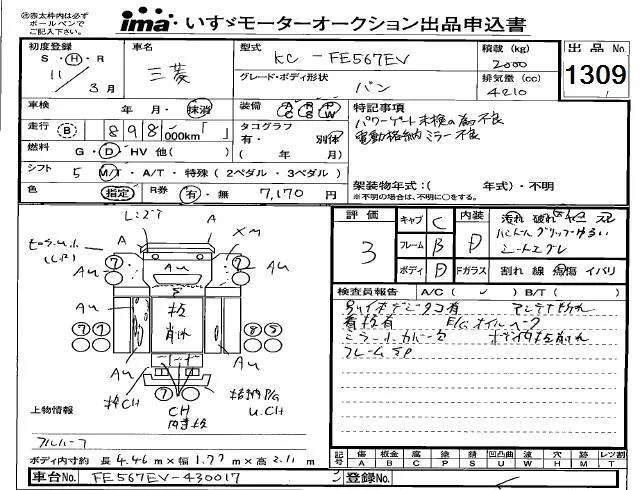 ㊟赤太枠内は必ず
ボールペンで
ご記入下さい。
ima いすゞモーターオークション出品申込書
初度登録
S・H・R
11年
3月
車名
三菱
型式
KC-FE567EV
グレード・ボディ形状
バン
積載(kg)
2000
排気量(cc)
4210
出品No.
1309
車検
年・月・抹消
装備
AC PS PW
走行
B 898,000km「 」
タコグラフ
有・別体
( 年/ 月)
燃料
G・D・HV 他( )
シフト
5 M/T・A/T・特殊(2ペダル・3ペダル)
色
指定
R券
有・無 7,170円
特記事項
パワーゲート未検の為不良
電動格納ミラー不良
架装物年式:( 年式)・不明
※不明の場合は、不明に○をする。
L:ユT
A
A
XM
Au
Au
Au
Au
Au
Au
Au
7
7
7
7
8
5
7
板
削れ
CH
格納P/G
U.CH
CH
上物情報
アルルーフ
ボディ内寸約 長4.46m×幅1.77m×高2.11m
車台No.
FE567EV-430017
評価
3
キャブ C
フレーム B
ボディ D
内装 D
汚れ 破れ ヤニ スレ
ハンドルグリップゆるい
シートエグレ
Fガラス
割れ 線 飛傷 イバリ
検査員報告
A/C( ✓ )B/T( )
アンテナ折れ
看板有 E/Gオイルベーク
ミラーホカバー欠 ボディ内板削れ
フレームSP
記号
傷 A
板金 B
腐 C
塗 P
錆 S
凹凸曲 U
波 W
穴 H
痕 M
レツ割 T
登録No.